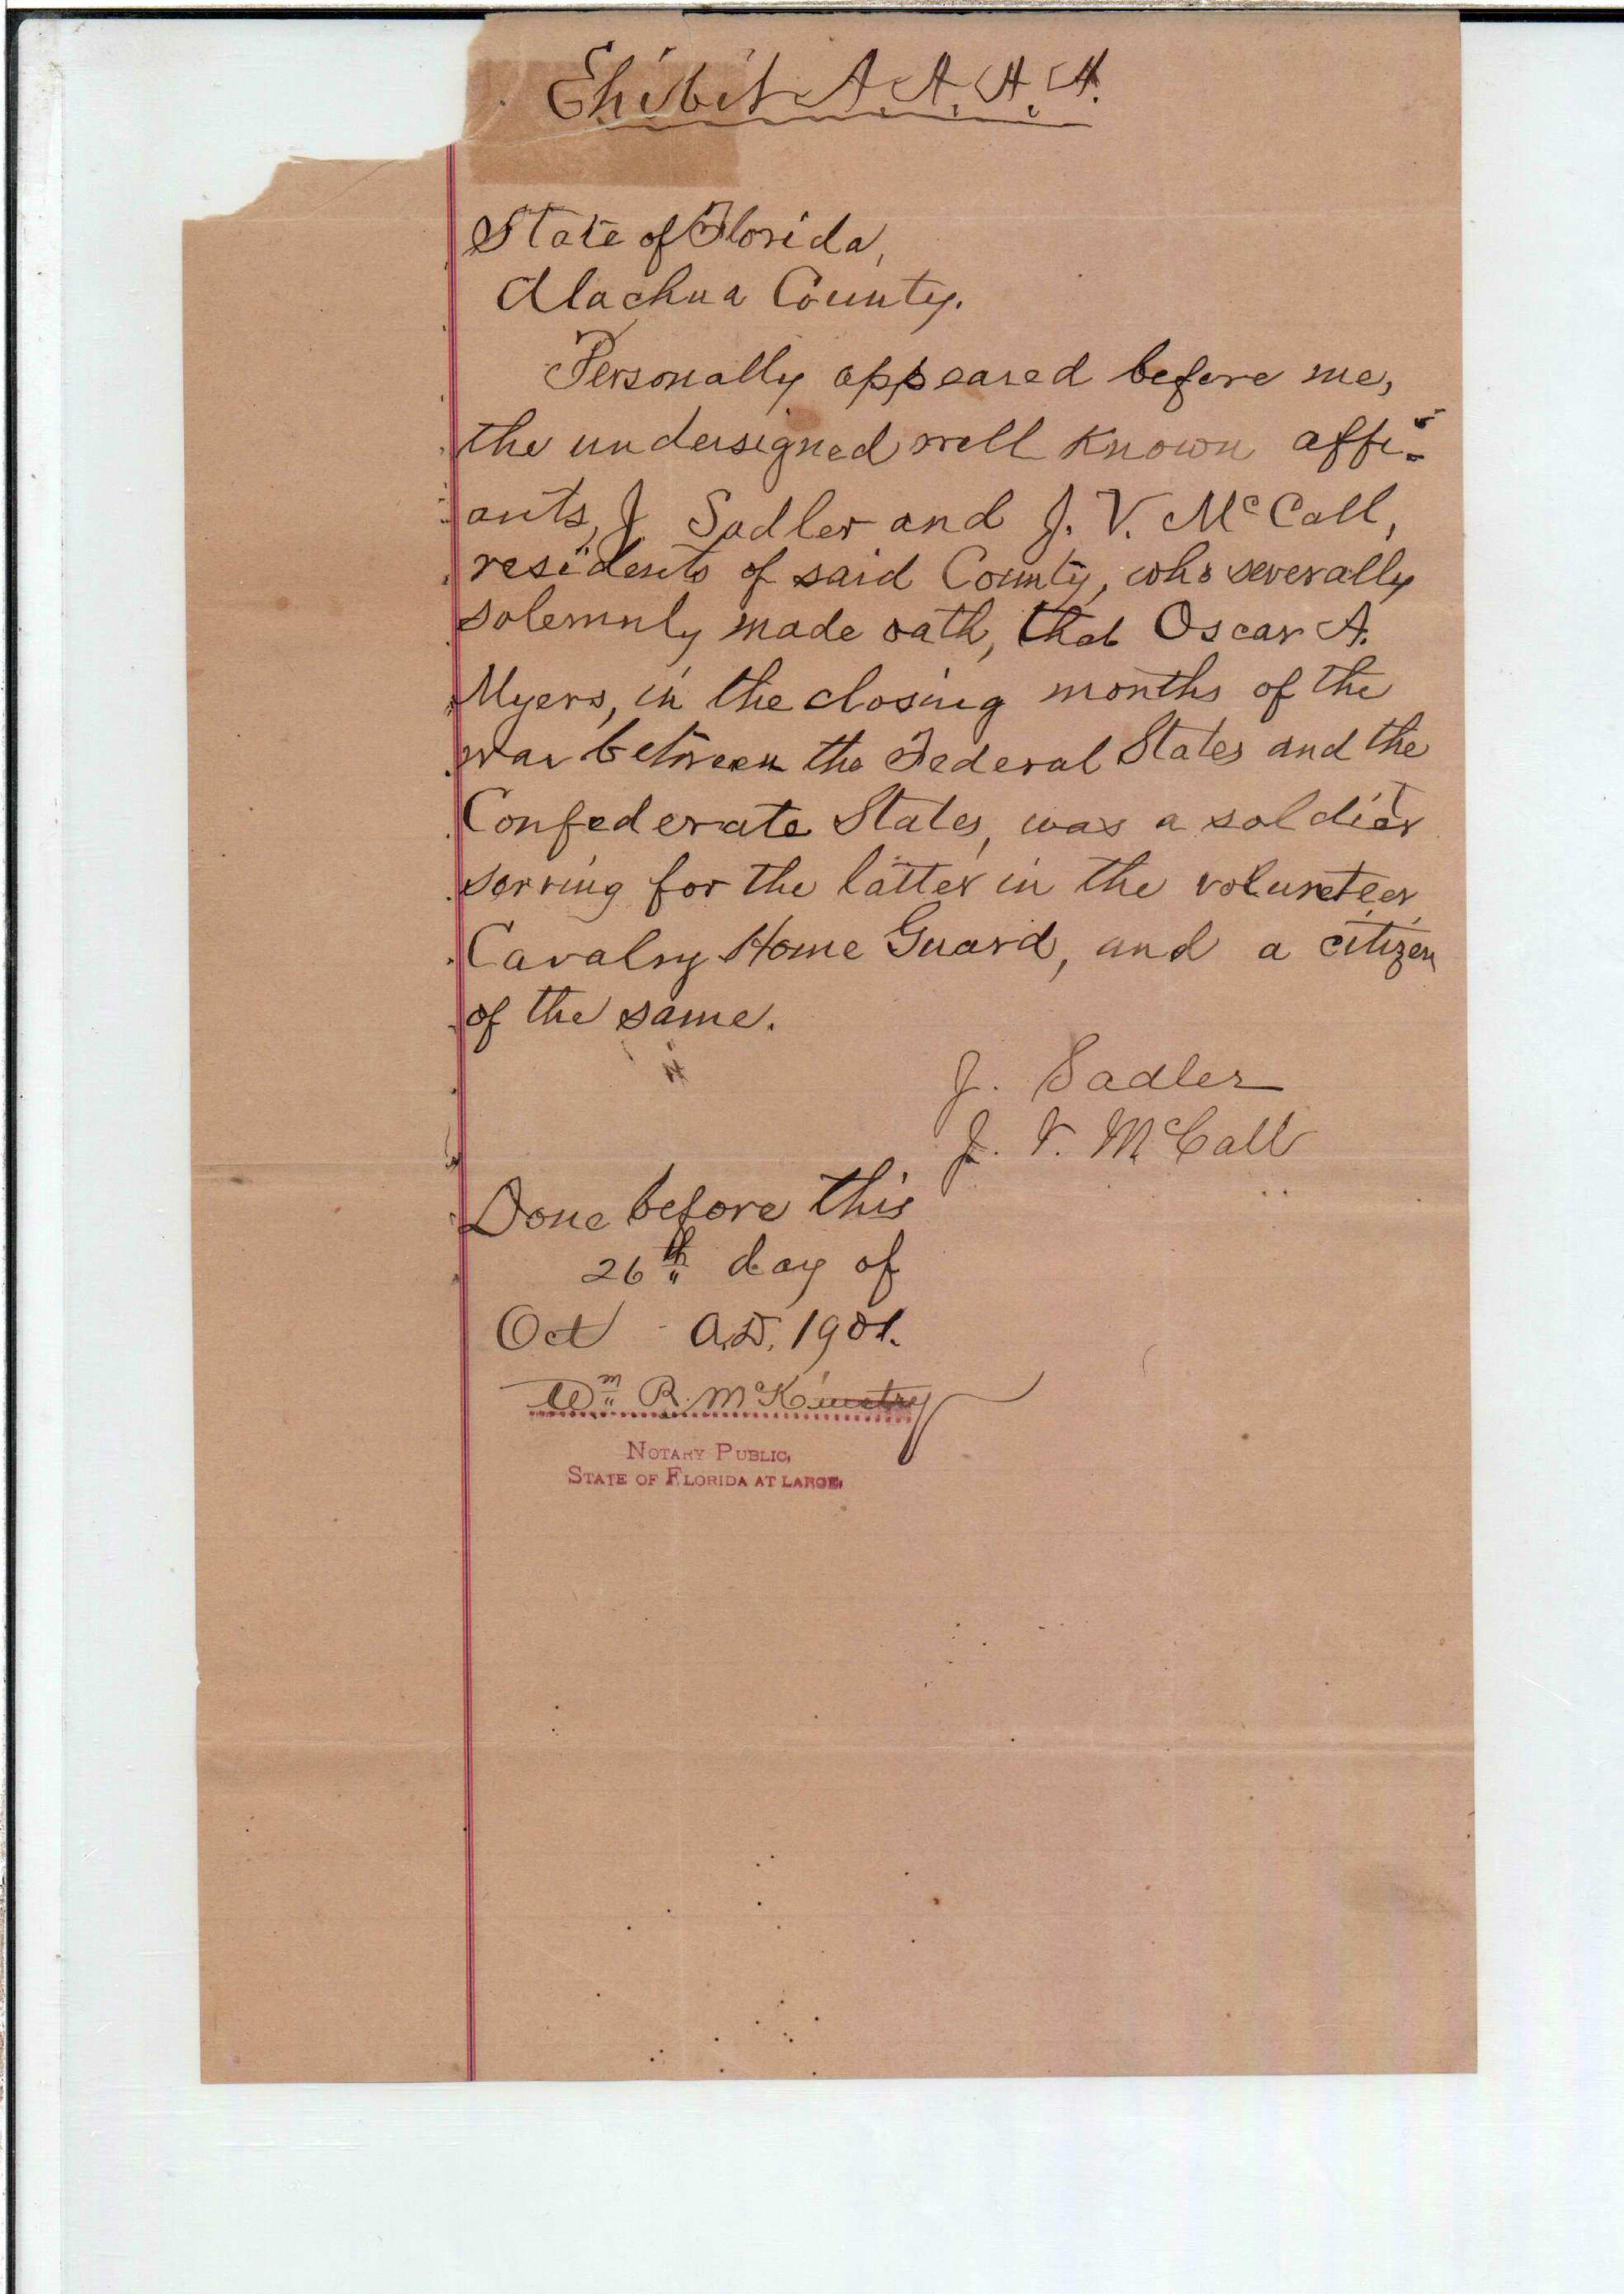 Ehibit A. A. A. A.
State of Florida,
Alachua County.
Personally appeared before me,
the undersigned well known affi-
ants, J. Sadler and J. V. McCall,
residents of said County, who severally
solemnly made oath, that Oscar A.
Myers, in the closing months of the
war between the Federal States and the
Confederate States, was a soldier
serving for the latter in the volunteer
Cavalry Home Guard, and a citizen
of the same.
J. Sadler
J. V. McCall
Done before this
26th day of
Oct A.D. 1901.
Wm R. McKinstry
NOTARY PUBLIC,
STATE OF FLORIDA AT LARGE.